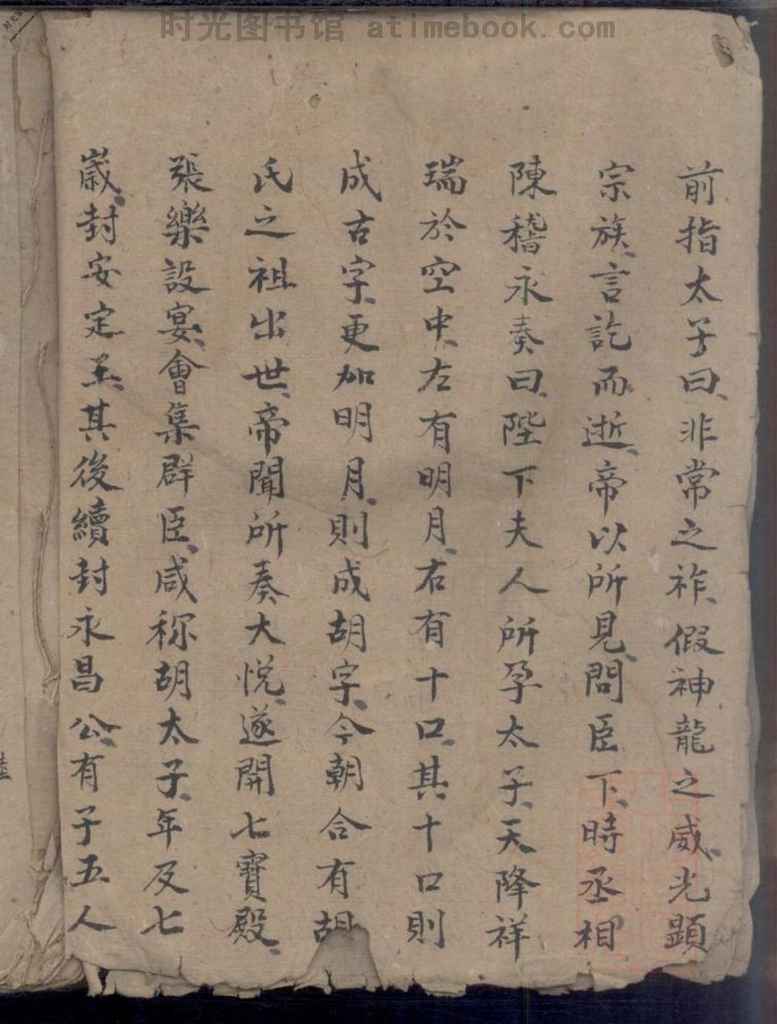 时光图书馆 atimebook.com
前指太子曰、非常之祚、假神龍之威、光顕
宗族、言訖而逝、帝以所見、問臣下、時丞相
陳稽永奏曰、陛下夫人所孕太子、天降祥
瑞於空中、左有明月、右有十口、其十口則
成古字、更加明月、則成胡字、今朝合有胡
氏之祖出世、帝聞所奏大悅、遂開七寶殿、
張樂設宴、會集群臣、咸称胡太子、年及七
歲、封安定王、其後續封永昌公、有子五人